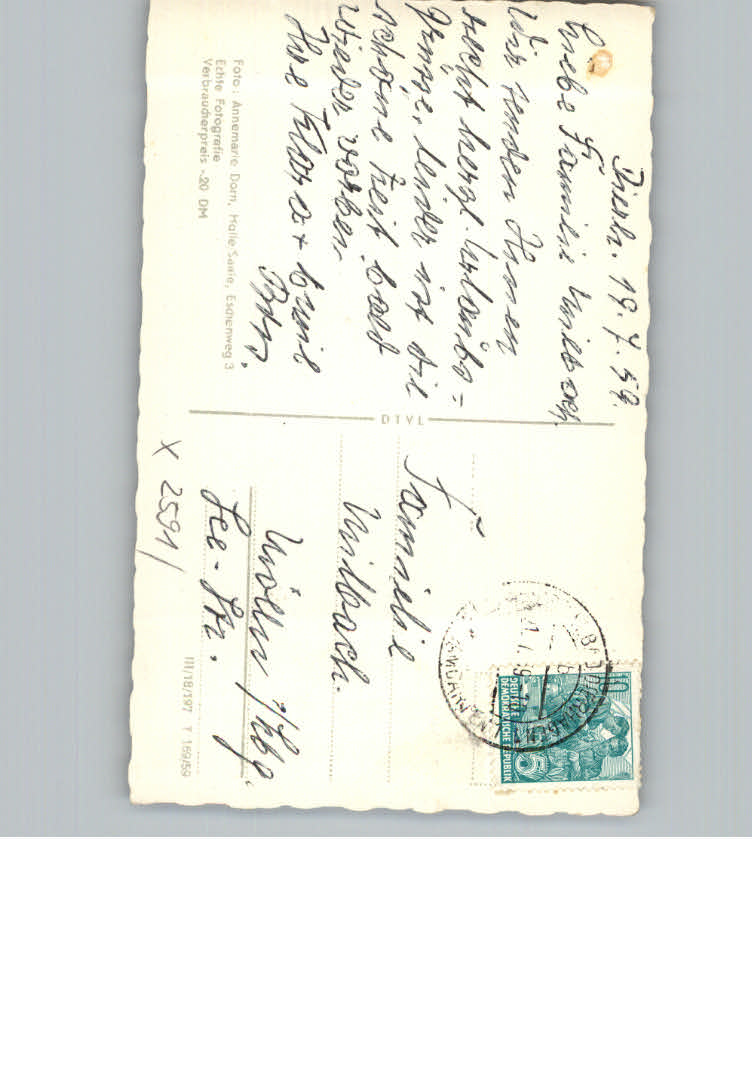 Dierh. 19.7.59.
Liebe Familie Milbach.
Wir senden Ihnen
recht herzl. Urlaubs=
grüsse, leider ist die
schöne Zeit bald
wieder vorbei.
Ihre Klara + Emil
Foto: Annemarie Dorn, Halle Saale, Eschenweg 3
Echte Fotografie
Verbraucherpreis -.20 DM
DTVL
DEUTSCHE
DEMOKRATISCHE REPUBLIK
5
Familie
Milbach.
Mölln i/Lbg.
See-Str.
X 2591/
III/18/197 T 169/59